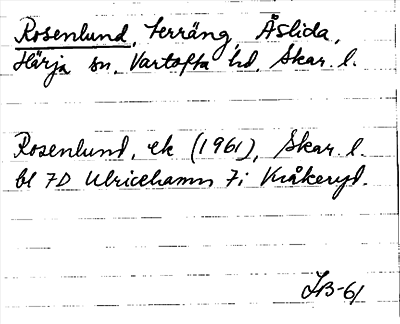 Rosenlund, terräng, Åslida,
Härja sn, Vartofta hd, Skar. l.
Rosenlund, ek (1961), Skar. l.
bl 7D Ulricehamn 7i Kråkeryd.
IB-61